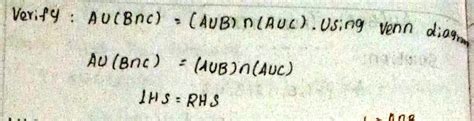 Verify : AU(BnC) = (AUB)n(AUC). Using Venn diagram
AU(BnC) = (AUB)n(AUC)
LHS = RHS